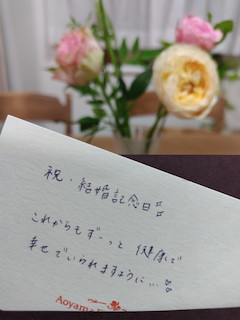 祝・結婚記念日
これからもずーっと 健康で
幸せでいられますように…
Aoyama